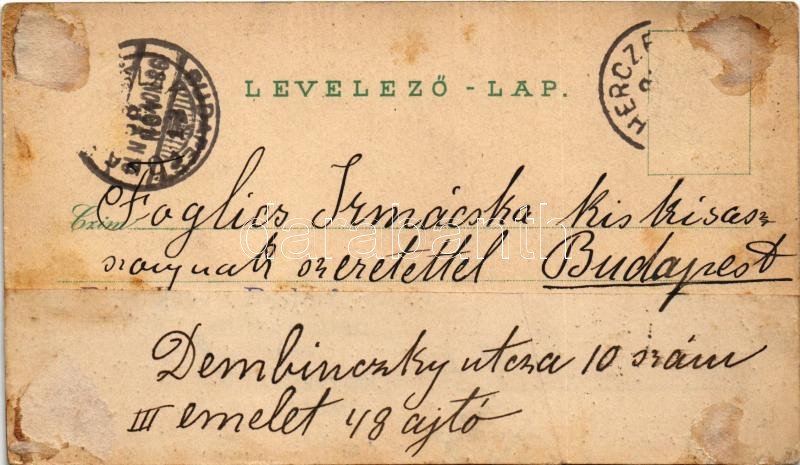 LEVELEZŐ - LAP.
HERCZF
BUDAPEST
Czim Foglics Irmácska kis kisasz-
szonynak szeretettel Budapest
Dembinczky utcza 10 szám
III emelet 48 ajtó
darabanth